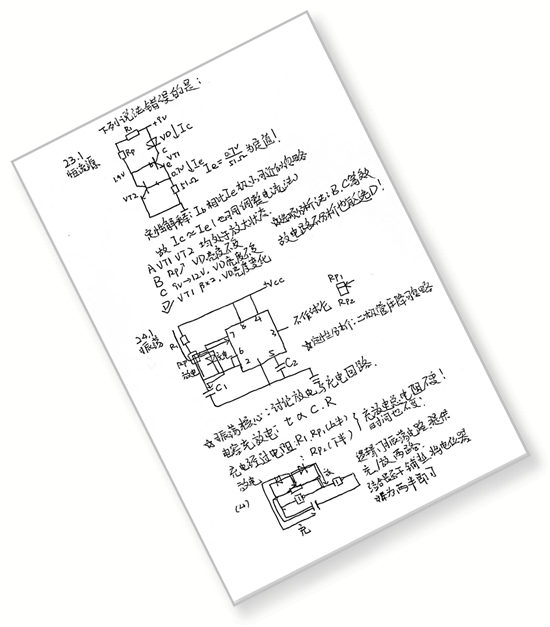 下列说法错误的是：
23.1
恒流源
R1
+9V
Rp
VD↓Ic
C
VT1
e
1.4V
0.7V↓Ie
VT2
51Ω
Ie=0.7V/51Ω 为定值！
定性解释：Ib相比Ie极小，可近似忽略
故 Ic≈Ie（也可用调整电流法）
A VT1 VT2 均处于放大状态
B Rp↗ VD亮度不变
C 9V→12V，VD亮度不变
D VT1 β×2，VD亮度变化
B.C等效
故电路不分析也能选D！
24.1
振荡
+VCC
R1
RP
放电
充电
7
8
4
3
6
2
5
1
C1
C2
RP1
RP2
☆定性分析：二极管压降可忽略
☆振荡核心：讨论放电与充电回路．
电容充放电：t∝C.R
充电经过电阻：R1，RP1(上半)
放电：RP2(下半)
充放电总电阻不变！
时间也不变．
(4)
充
逻辑门振荡电路提供
充/放两路：
结合影子辅助，将电位器
拆为两半即可